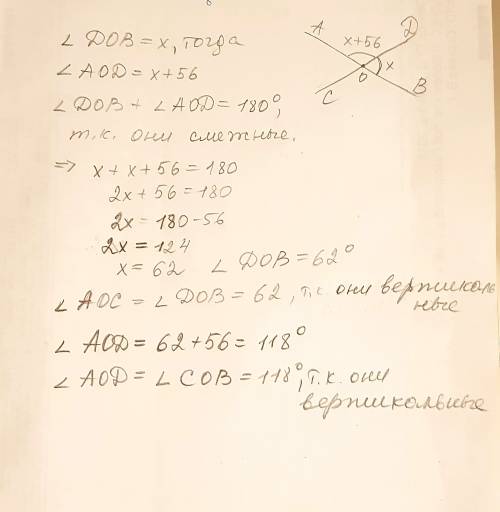 ∠ DOB = x, тогда
∠ AOD = x+56
∠ DOB + ∠ AOD = 180°,
т.к. они смежные.
⇒ x + x + 56 = 180
2x + 56 = 180
2x = 180 - 56
2x = 124
x = 62 ∠ DOB = 62°
∠ AOC = ∠ DOB = 62, т.к. они вертикаль
ные
∠ AOD = 62 + 56 = 118°
∠ AOD = ∠ COB = 118°, т.к. они
вертикольные
A
D
x+56
x
O
C
B